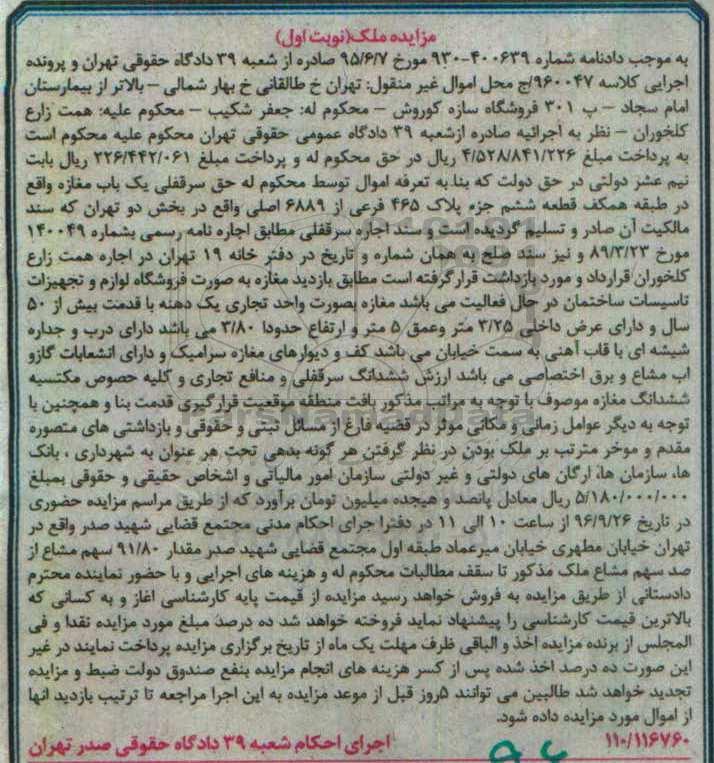 مزایده ملک(نوبت اول)
به موجب دادنامه شماره ۴۰۰۶۳۹-۹۳۰ مورخ ۹۵/۶/۷ صادره از شعبه ۳۹ دادگاه حقوقی تهران و پرونده
اجرایی کلاسه ۹۶۰۰۴۷/ج محل اموال غیر منقول: تهران خ طالقانی خ بهار شمالی – بالاتر از بیمارستان
امام سجاد – پ ۳۰۱ فروشگاه سازه کوروش – محکوم له: جعفر شکیب – محکوم علیه: همت زارع
کلخوران – نظر به اجرائیه صادره ازشعبه ۳۹ دادگاه عمومی حقوقی تهران محکوم علیه محکوم است
به پرداخت مبلغ ۴/۵۲۸/۸۴۱/۲۲۶ ریال در حق محکوم له و پرداخت مبلغ ۲۲۶/۴۴۲/۰۶۱ ریال بابت
نیم عشر دولتی در حق دولت که بنا به تعرفه اموال توسط محکوم له حق سرقفلی یک باب مغازه واقع
در طبقه همکف قطعه ششم جزء پلاک ۴۶۵ فرعی از ۶۸۸۹ اصلی واقع در بخش دو تهران که سند
مالکیت آن صادر و تسلیم گردیده است و سند اجاره سرقفلی مطابق اجاره نامه رسمی بشماره ۱۴۰۰۴۹
مورخ ۸۹/۳/۲۳ و نیز سند صلح به همان شماره و تاریخ در دفتر خانه ۱۹ تهران در اجاره همت زارع
کلخوران قرارداد و مورد بازداشت قرارگرفته است مطابق بازدید مغازه به صورت فروشگاه لوازم و تجهیزات
تاسیسات ساختمان در حال فعالیت می باشد مغازه بصورت واحد تجاری یک دهنه با قدمت بیش از ۵۰
سال و دارای عرض داخلی ۳/۲۵ متر وعمق ۵ متر و ارتفاع حدودا ۳/۸۰ می باشد دارای درب و جداره
شیشه ای با قاب آهنی به سمت خیابان می باشد کف و دیوارهای مغازه سرامیک و دارای انشعابات گازو
اب مشاع و برق اختصاصی می باشد ارزش ششدانگ سرقفلی و منافع تجاری و کلیه حصوص مکتسبه
ششدانگ مغازه موصوف با توجه به مراتب مذکور بافت منطقه موقعیت قرارگیری قدمت بنا و همچنین با
توجه به دیگر عوامل زمانی و مکانی موثر در قضیه فارغ از مسائل ثبتی و حقوقی و بازداشتی های متصوره
مقدم و موخر مترتب بر ملک بودن در نظر گرفتن هر گونه بدهی تحت هر عنوان به شهرداری ، بانک
ها، سازمان ها، ارگان های دولتی و غیر دولتی سازمان امور مالیاتی و اشخاص حقیقی و حقوقی بمبلغ
۵/۱۸۰/۰۰۰/۰۰۰ ریال معادل پانصد و هیجده میلیون تومان برآورد که از طریق مراسم مزایده حضوری
در تاریخ ۹۶/۹/۲۶ از ساعت ۱۰ الی ۱۱ در دفترا جرای احکام مدنی مجتمع قضایی شهید صدر واقع در
تهران خیابان مطهری خیابان میرعماد طبقه اول مجتمع قضایی شهید صدر مقدار ۹۱/۸۰ سهم مشاع از
صد سهم مشاع ملک مذکور تا سقف مطالبات محکوم له و هزینه های اجرایی و با حضور نماینده محترم
دادستانی از طریق مزایده به فروش خواهد رسید مزایده از قیمت پایه کارشناسی اغاز و به کسانی که
بالاترین قیمت کارشناسی را پیشنهاد نماید فروخته خواهد شد ده درصد مبلغ مورد مزایده نقدا و فی
المجلس از برنده مزایده اخذ و الباقی ظرف مهلت یک ماه از تاریخ برگزاری مزایده پرداخت نمایند در غیر
این صورت ده درصد اخذ شده پس از کسر هزینه های انجام مزایده بنفع صندوق دولت ضبط و مزایده
تجدید خواهد شد طالبین می توانند ۵روز قبل از موعد مزایده به این اجرا مراجعه تا ترتیب بازدید انها
از اموال مورد مزایده داده شود.
۱۱۰/۱۱۶۷۶۰ اجرای احکام شعبه ۳۹ دادگاه حقوقی صدر تهران